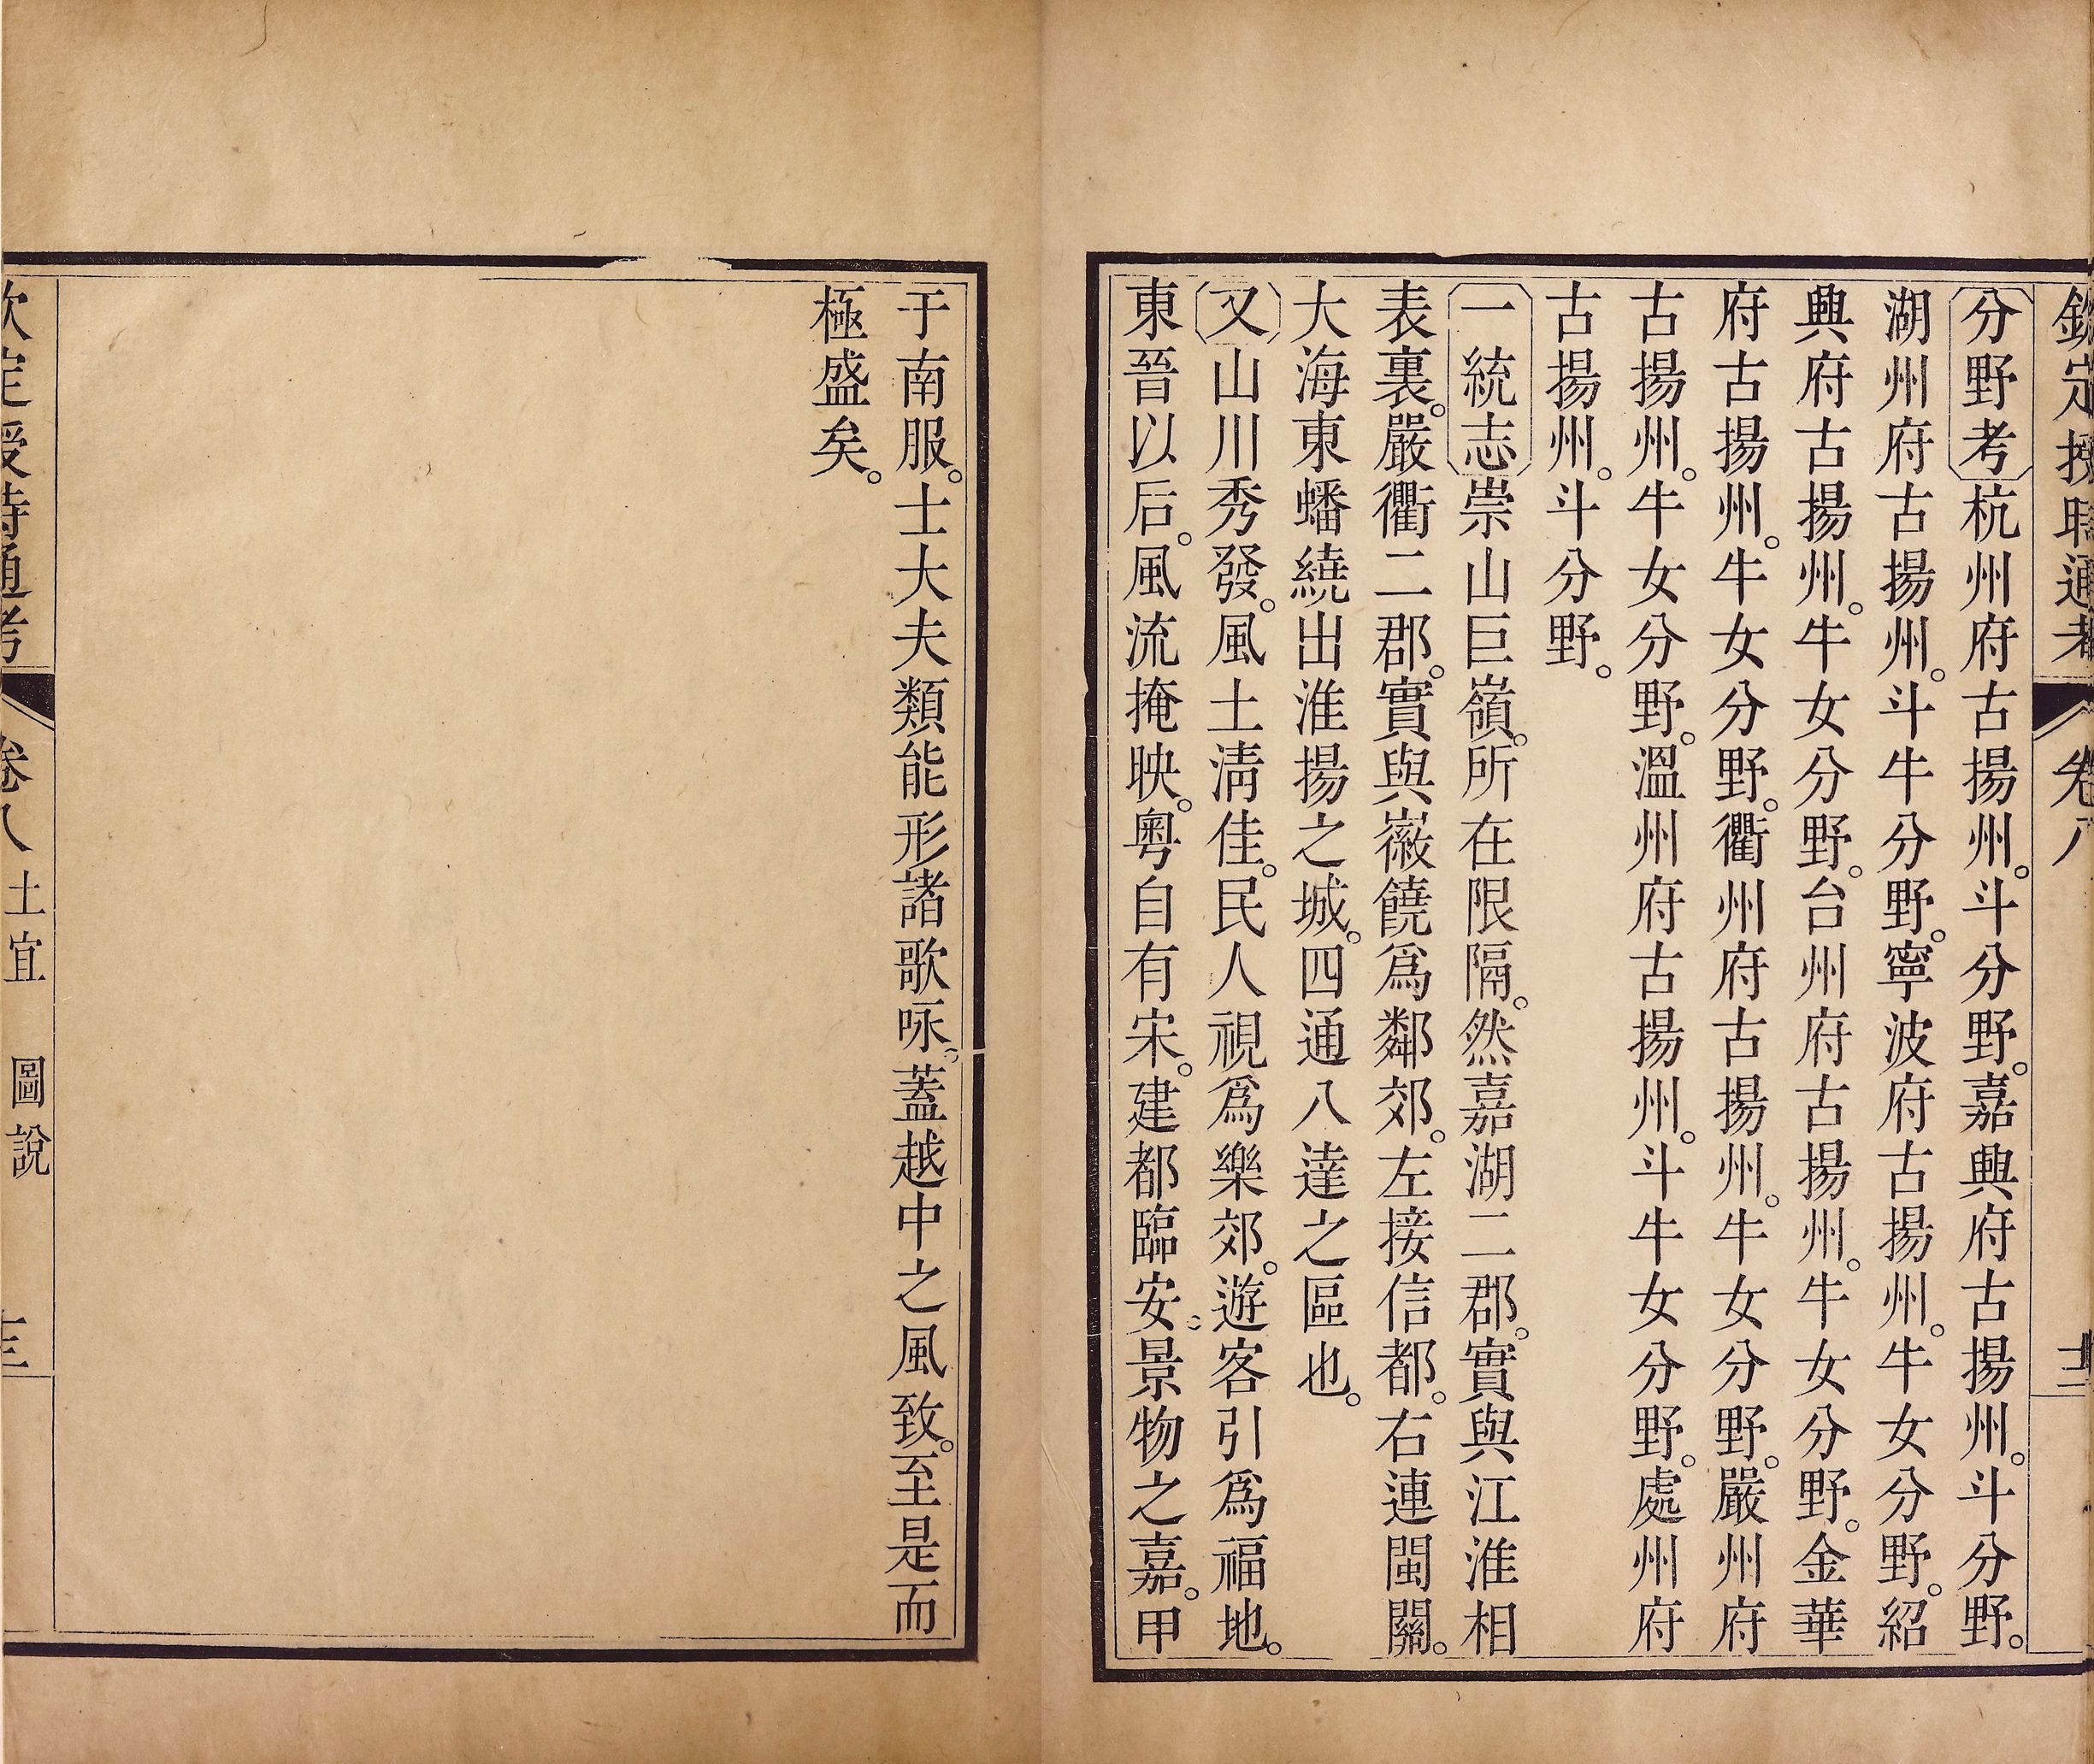 欽定授時通考 卷八 十二
分野考杭州府古揚州。斗分野。嘉興府古揚州。斗分野。
湖州府古揚州。斗牛分野。寧波府古揚州。牛女分野。紹
興府古揚州。牛女分野。台州府古揚州。牛女分野。金華
府古揚州。牛女分野。衢州府古揚州。牛女分野。嚴州府
古揚州。牛女分野。溫州府古揚州。斗牛女分野。處州府
古揚州。斗分野。
一統志崇山巨嶺。所在限隔。然嘉湖二郡。實與江淮相
表裏。嚴衢二郡。實與徽饒爲鄰郊。左接信都。右連閩關。
大海東蟠繞出淮揚之城。四通八達之區也。
又山川秀發。風土淸佳。民人視爲樂郊。遊客引爲福地。
東晉以后。風流掩映。粤自有宋。建都臨安。景物之嘉。甲
于南服。士大夫類能形諸歌咏。蓋越中之風致。至是而
極盛矣。
欽定授時通考 卷八 土宜 圖說 十三